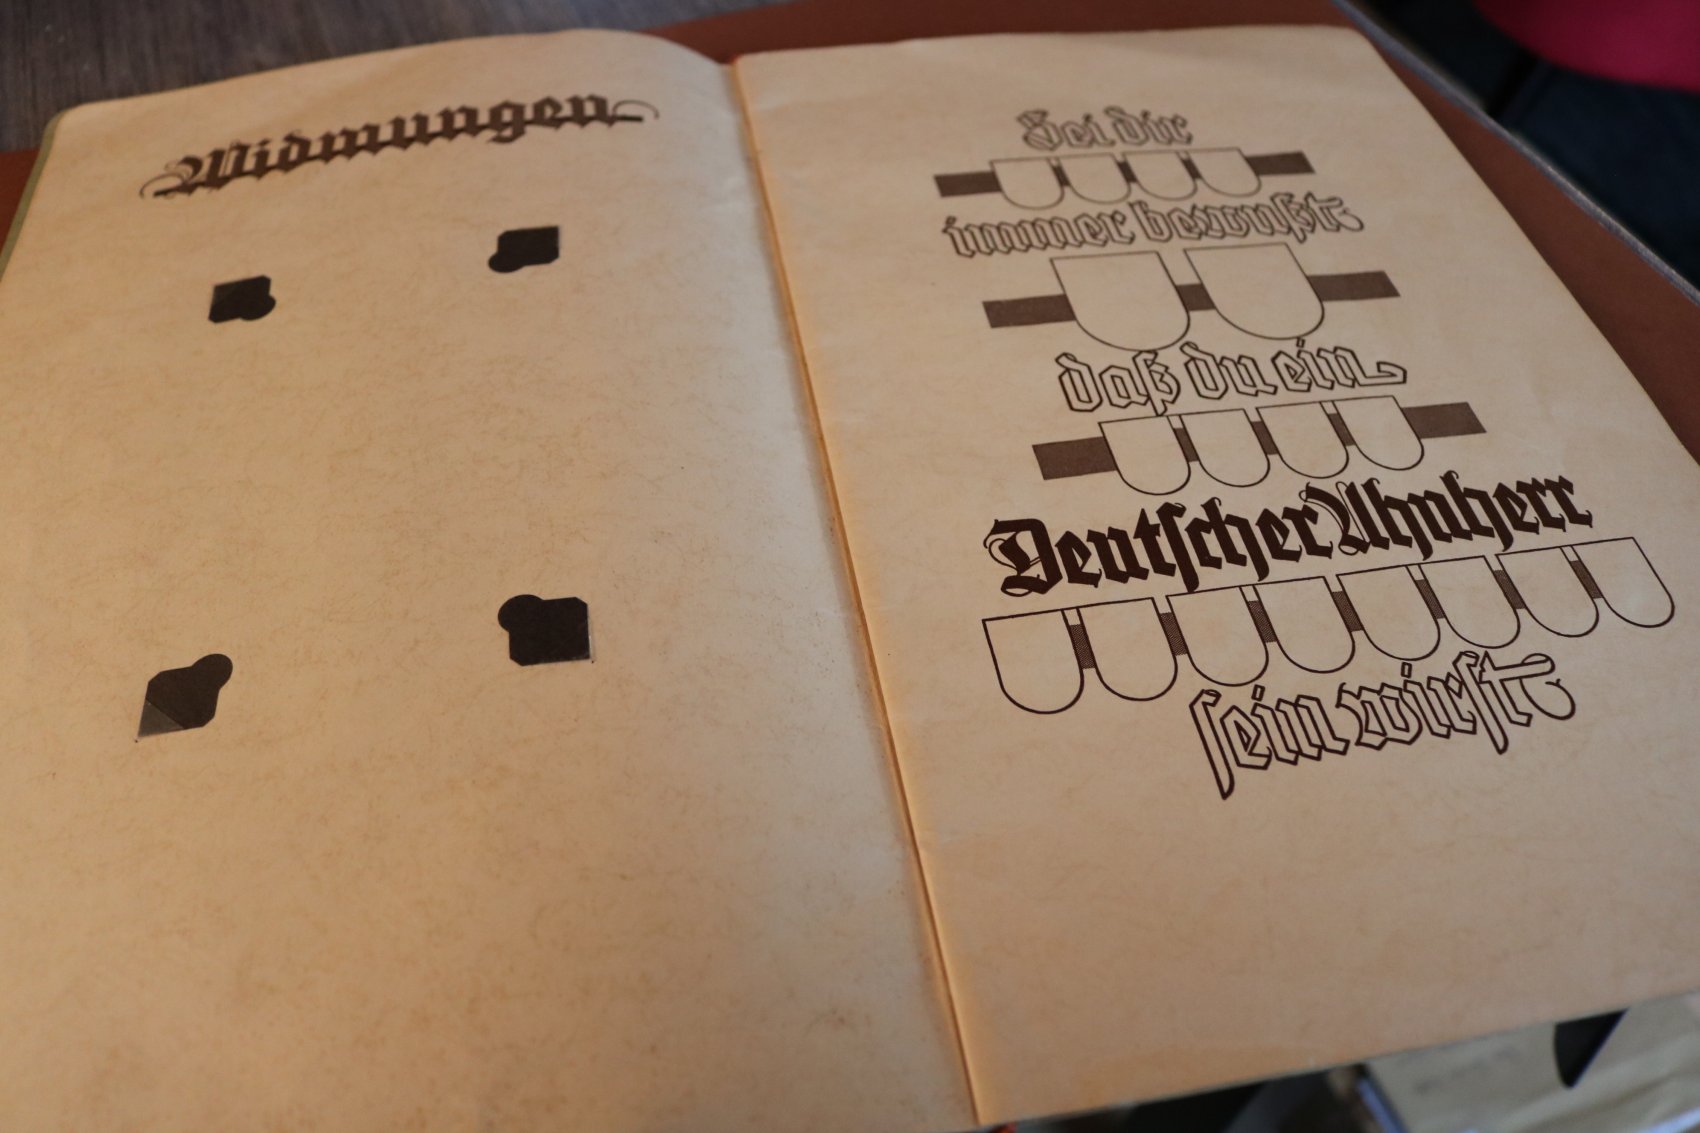 Widmungen
Sei dir
immer bewußt
daß du ein
Deutscher Ahnherr
sein wirst